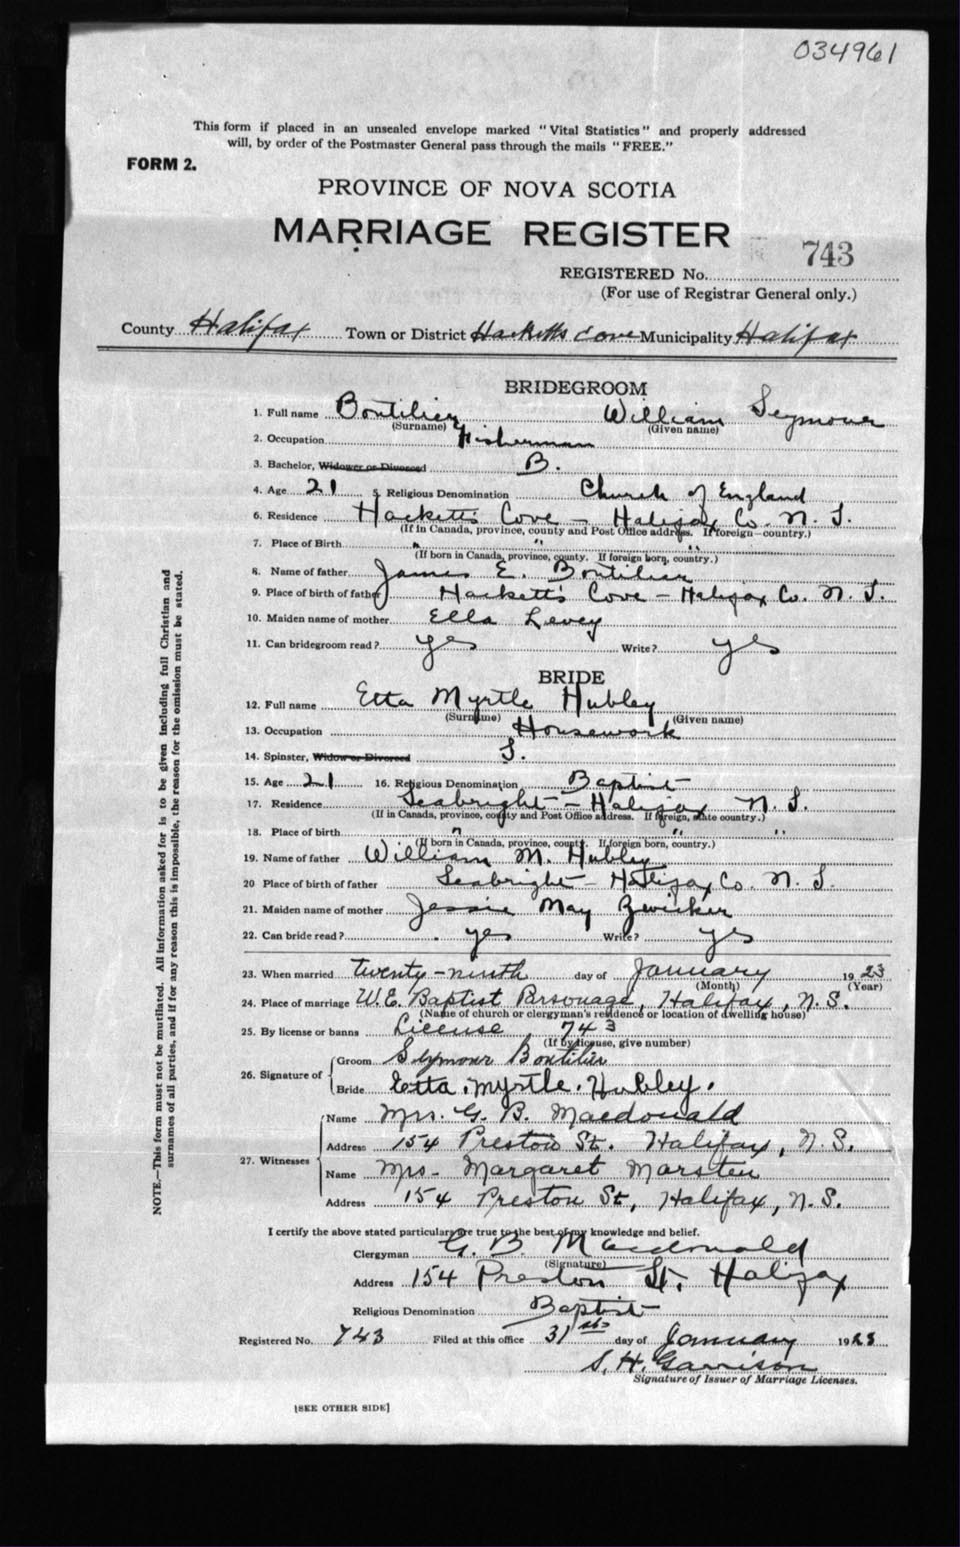 034961
This form if placed in an unsealed envelope marked "Vital Statistics" and properly addressed
will, by order of the Postmaster General pass through the mails "FREE."
FORM 2.
PROVINCE OF NOVA SCOTIA
MARRIAGE REGISTER
REGISTERED No. 743
(For use of Registrar General only.)
County Halifax Town or District Hacketts Cove Municipality Halifax
BRIDEGROOM
1. Full name Boutilier William Seymour
(Surname) (Given name)
2. Occupation Fisherman
3. Bachelor, Widower or Divorced B.
4. Age 21 5. Religious Denomination Church of England
6. Residence Hackett's Cove - Halifax Co. N. S.
(If in Canada, province, county and Post Office address. If foreign—country.)
7. Place of Birth " " "
(If born in Canada, province, county. If foreign born, country.)
8. Name of father James E. Boutilier
9. Place of birth of father Hackett's Cove - Halifax Co. N. S.
10. Maiden name of mother Ella Levey
11. Can bridegroom read? yes Write? yes
BRIDE
12. Full name Etta Myrtle Hubley
(Surname) (Given name)
13. Occupation Housework
14. Spinster, Widow or Divorced S.
15. Age 21 16. Religious Denomination Baptist
17. Residence Seabright - Halifax N. S.
(If in Canada, province, county and Post Office address. If foreign, state country.)
18. Place of birth " " "
(If born in Canada, province, county. If foreign born, country.)
19. Name of father William M. Hubley
20 Place of birth of father Seabright - Halifax Co. N. S.
21. Maiden name of mother Jessie May Zwicker
22. Can bride read? yes Write? yes
23. When married twenty-ninth day of January 1923
(Month) (Year)
24. Place of marriage W.E. Baptist Parsonage, Halifax, N.S.
(Name of church or clergyman's residence or location of dwelling house)
25. By license or banns License 743
(If by license, give number)
26. Signature of Groom Seymour Boutilier
Bride Etta. Myrtle. Hubley.
27. Witnesses Name Mrs. G. B. Macdonald
Address 154 Preston St. Halifax, N.S.
Name Mrs- Margaret Marsten
Address 154 Preston St, Halifax, N.S.
I certify the above stated particulars are true to the best of my knowledge and belief.
Clergyman G. B. Macdonald
(Signature)
Address 154 Preston St. Halifax
Religious Denomination Baptist
Registered No. 743 Filed at this office 31st day of January 1923
S. H. Garrison
Signature of Issuer of Marriage Licenses.
[SEE OTHER SIDE]
NOTE.—This form must not be mutilated. All information asked for is to be given including full Christian and
surnames of all parties, and if for any reason this is impossible, the reason for the omission must be stated.